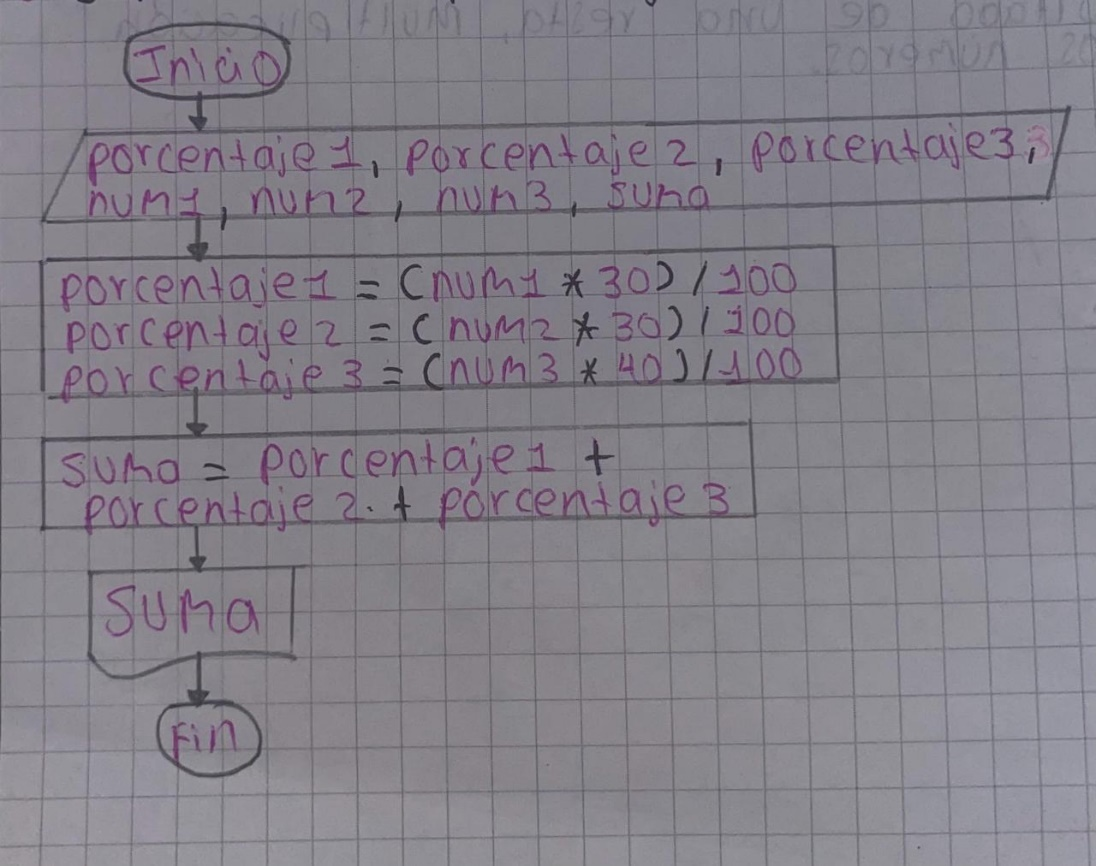 Inicio
porcentaje 1, porcentaje 2, porcentaje 3,
num1, num2, num3, suma
porcentaje 1 = (num1 * 30) / 100
porcentaje 2 = (num2 * 30) / 100
porcentaje 3 = (num3 * 40) / 100
suma = porcentaje 1 +
porcentaje 2. + porcentaje 3
suma
Fin